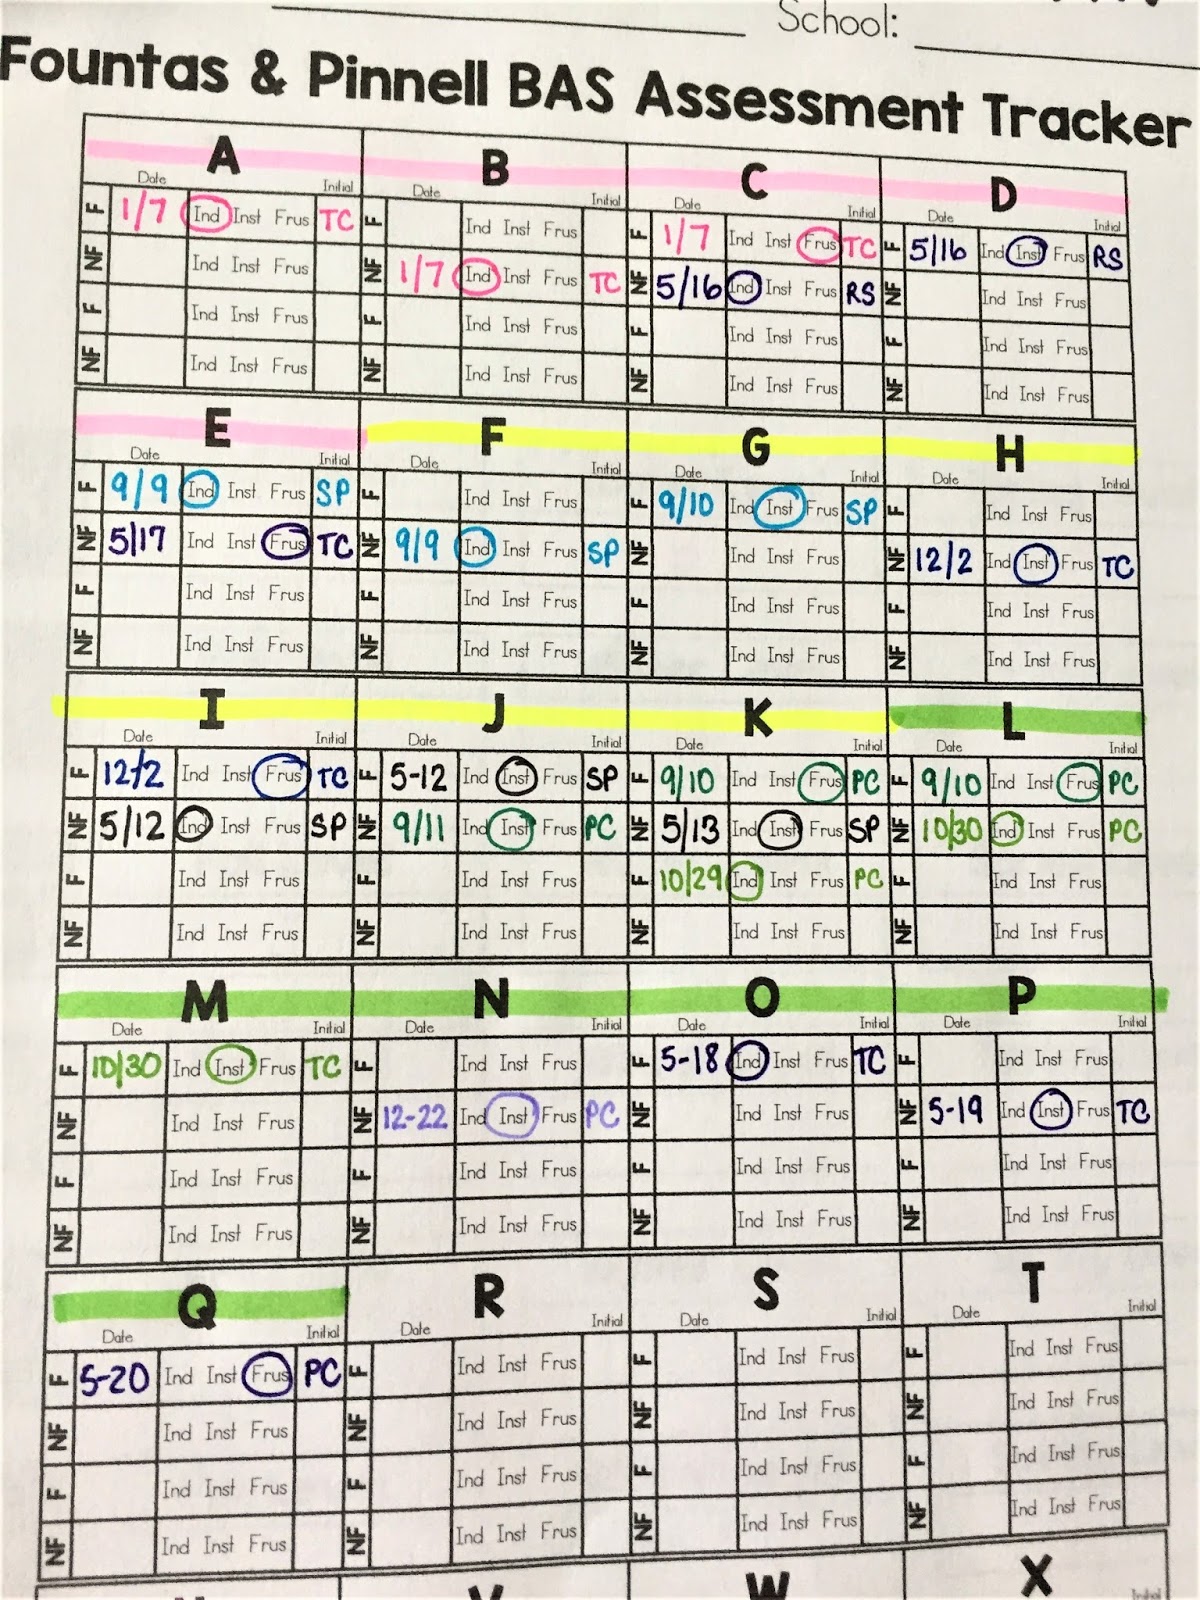 School:
Fountas & Pinnell BAS Assessment Tracker
A B C D
Date Initial Date Initial Date Initial Date Initial
F 1/7 Ind Inst Frus TC F Ind Inst Frus F 1/7 Ind Inst Frus TC F 5/16 Ind Inst Frus RS
NF Ind Inst Frus NF 1/7 Ind Inst Frus TC NF 5/16 Ind Inst Frus RS NF Ind Inst Frus
F Ind Inst Frus F Ind Inst Frus F Ind Inst Frus F Ind Inst Frus
NF Ind Inst Frus NF Ind Inst Frus NF Ind Inst Frus NF Ind Inst Frus
E F G H
Date Initial Date Initial Date Initial Date Initial
F 9/9 Ind Inst Frus SP F Ind Inst Frus F 9/10 Ind Inst Frus SP F Ind Inst Frus
NF 5/17 Ind Inst Frus TC NF 9/9 Ind Inst Frus SP NF Ind Inst Frus NF 12/2 Ind Inst Frus TC
F Ind Inst Frus F Ind Inst Frus F Ind Inst Frus F Ind Inst Frus
NF Ind Inst Frus NF Ind Inst Frus NF Ind Inst Frus NF Ind Inst Frus
I J K L
Date Initial Date Initial Date Initial Date Initial
F 12/2 Ind Inst Frus TC F 5-12 Ind Inst Frus SP F 9/10 Ind Inst Frus PC F 9/10 Ind Inst Frus PC
NF 5/12 Ind Inst Frus SP NF 9/11 Ind Inst Frus PC NF 5/13 Ind Inst Frus SP NF 10/30 Ind Inst Frus PC
F Ind Inst Frus F Ind Inst Frus F 10/29 Ind Inst Frus PC F Ind Inst Frus
NF Ind Inst Frus NF Ind Inst Frus NF Ind Inst Frus NF Ind Inst Frus
M N O P
Date Initial Date Initial Date Initial Date Initial
F 10/30 Ind Inst Frus TC F Ind Inst Frus F 5-18 Ind Inst Frus TC F Ind Inst Frus
NF Ind Inst Frus NF 12-22 Ind Inst Frus PC NF Ind Inst Frus NF 5-19 Ind Inst Frus TC
F Ind Inst Frus F Ind Inst Frus F Ind Inst Frus F Ind Inst Frus
NF Ind Inst Frus NF Ind Inst Frus NF Ind Inst Frus NF Ind Inst Frus
Q R S T
Date Initial Date Initial Date Initial Date Initial
F 5-20 Ind Inst Frus PC F Ind Inst Frus F Ind Inst Frus F Ind Inst Frus
NF Ind Inst Frus NF Ind Inst Frus NF Ind Inst Frus NF Ind Inst Frus
F Ind Inst Frus F Ind Inst Frus F Ind Inst Frus F Ind Inst Frus
NF Ind Inst Frus NF Ind Inst Frus NF Ind Inst Frus NF Ind Inst Frus
V W X
Initial